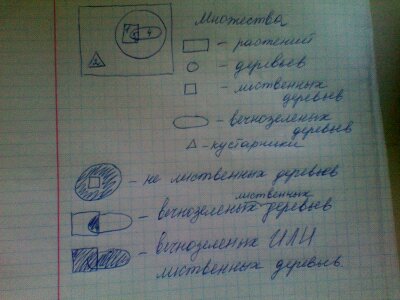 Множества
– растений
– деревьев
– лиственных
деревьев
– вечнозеленых
деревьев
– кустарники
– не лиственных деревьев
лиственных
– вечнозеленых деревьев
– вечнозеленых ИЛИ
лиственных деревьев.